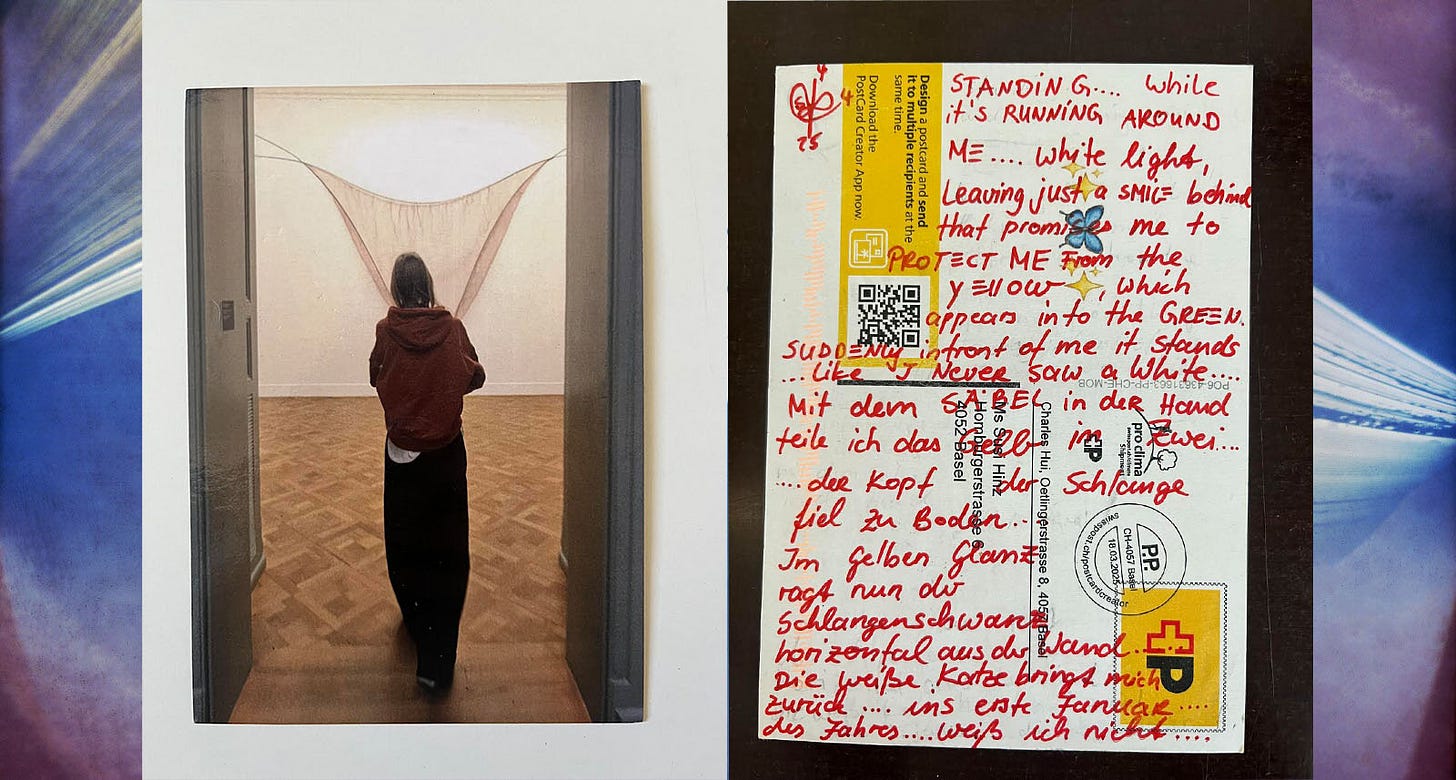 4
4
25
Design a postcard and send
it to multiple recipients at the
same time.
Download the
PostCard Creator App now.
STANDING.... while
it's RUNNING AROUND
ME.... white light,
Leaving just a SMILE behind
that promises me to
PROTECT ME From the
yellow, which
appears into the GREEN.
SUDDENLY infront of me it stands
...like I Never saw a White....
P06-43631663-PP-CHE-MOB
Mit dem SÄBEL in der Hand
teile ich das Gelb im Zwei...
....der Kopf der Schlange
fiel zu Boden...
Im gelben Glanz
ragt nun der
Schlangenschwanz
horizontal aus der Wand...
Die weiße Katze bringt mich
zurück .... ins erste Januar....
des Jahres....weiß ich nicht....
Ms Susi Hinz
Homburgerstrasse 6
4052 Basel
Charles Hui, Oetlingerstrasse 8, 4057 Basel
P
pro clima
Shipment
P.P.
CH-4057 Basel
18.03.2025
swisspost.ch/postcardcreator
P